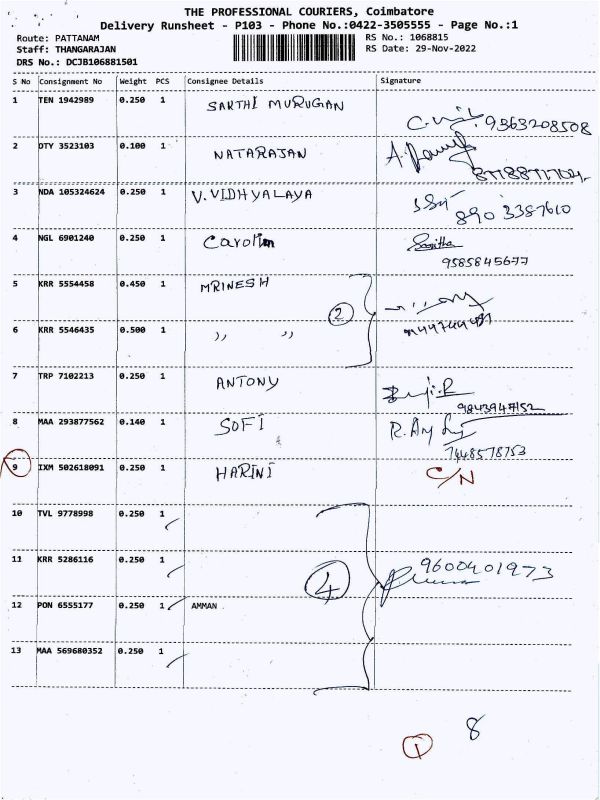 THE PROFESSIONAL COURIERS, Coimbatore
Delivery Runsheet - P103 - Phone No.:0422-3505555 - Page No.:1
Route: PATTANAM RS No.: 1068815
Staff: THANGARAJAN RS Date: 29-Nov-2022
DRS No.: DCJB106881501
S No Consignment No Weight PCS Consignee Details Signature
1 TEN 1942989 0.250 1 SAKTHI MURUGAN 9363208508
2 DTY 3523103 0.100 1 NATARAJAN
3 NDA 105324624 0.250 1 V.VIDHYALAYA 890 3387610
4 NGL 6901240 0.250 1 Carolin 9585845677
5 KRR 5554458 0.450 1 MRINESH
2
6 KRR 5546435 0.500 1 ,, ,,
7 TRP 7102213 0.250 1 ANTONY 9843947152
8 MAA 293877562 0.140 1 SOFI 7448578753
9 IXM 502618091 0.250 1 HARINI C/N
10 TVL 9778998 0.250 1
11 KRR 5286116 0.250 1 4 9600401973
12 PON 6555177 0.250 1 AMMAN
13 MAA 569680352 0.250 1
1 8